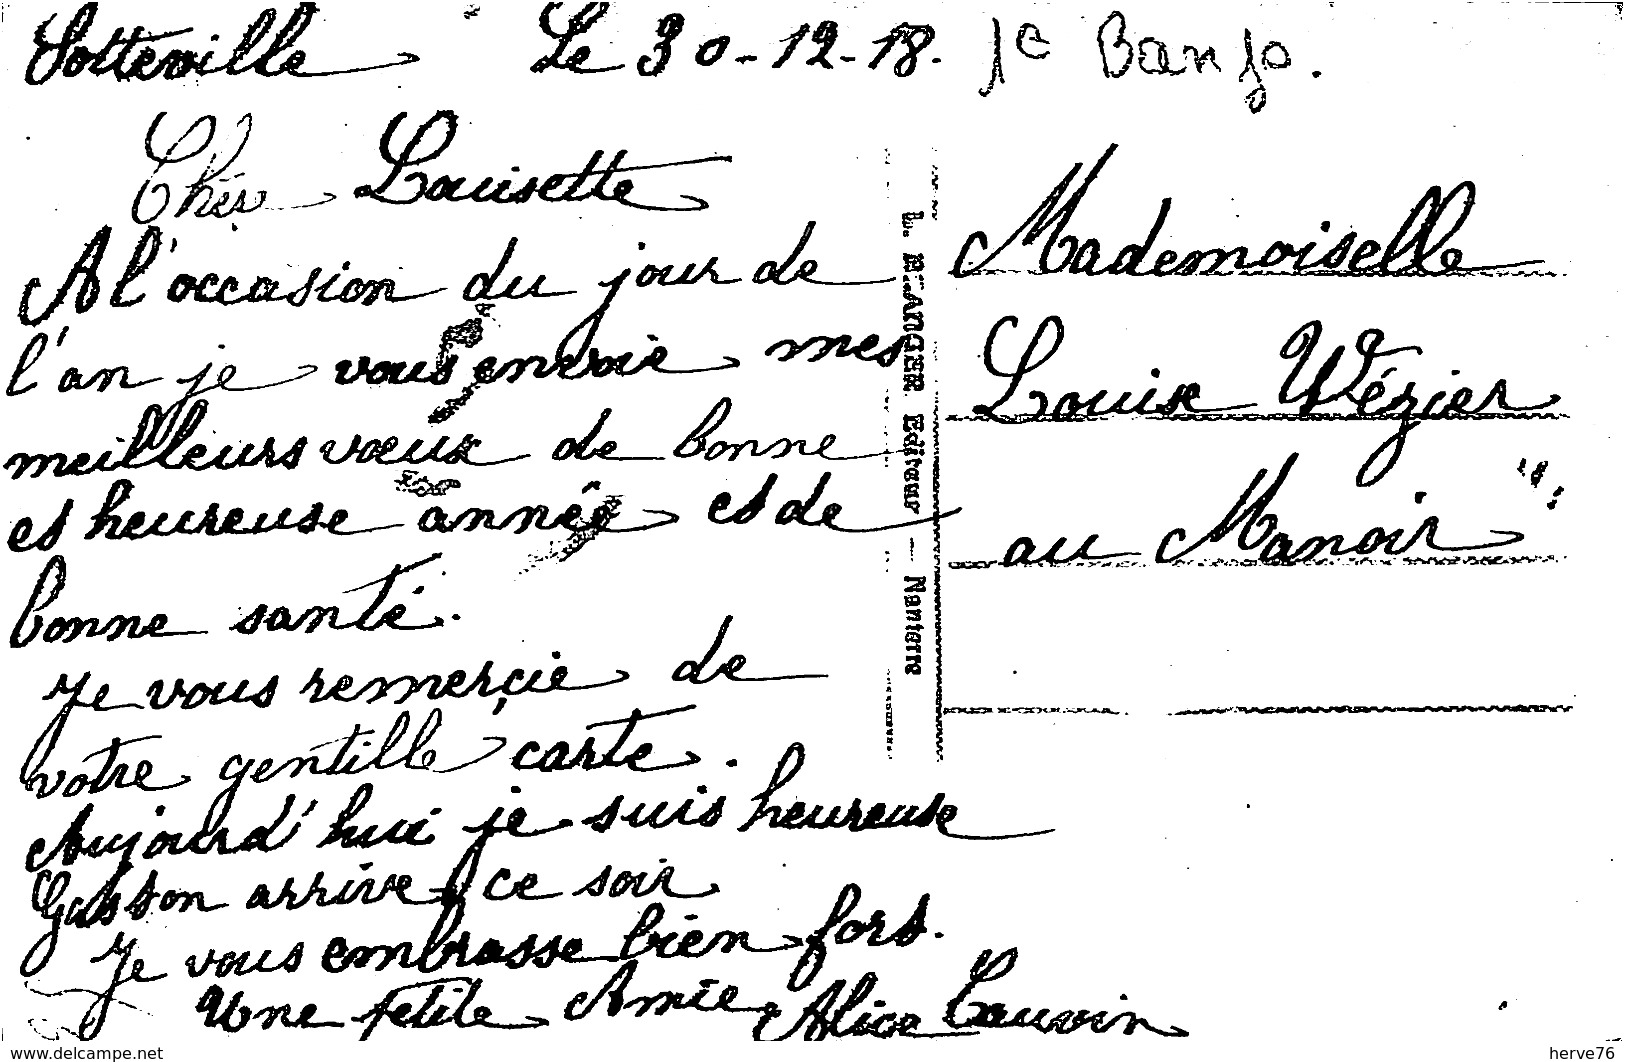 Sotteville Le 30-12-18.
Chér Louisette
A l'occasion du jour de
l'an je vous envoie mes
meilleurs vœux de bonne
et heureuse année et de
bonne santé.
Je vous remerçie de
votre gentille carte.
Aujourd'hui je suis heureuse
Gaston arrive ce soir
Je vous embrasse bien fort.
Une petite Amie
Alice Cauvin
L. BELANGER Editeur — Nanterre
Mademoiselle
Louise Wézier
au Manoir
www.delcampe.net
herve76